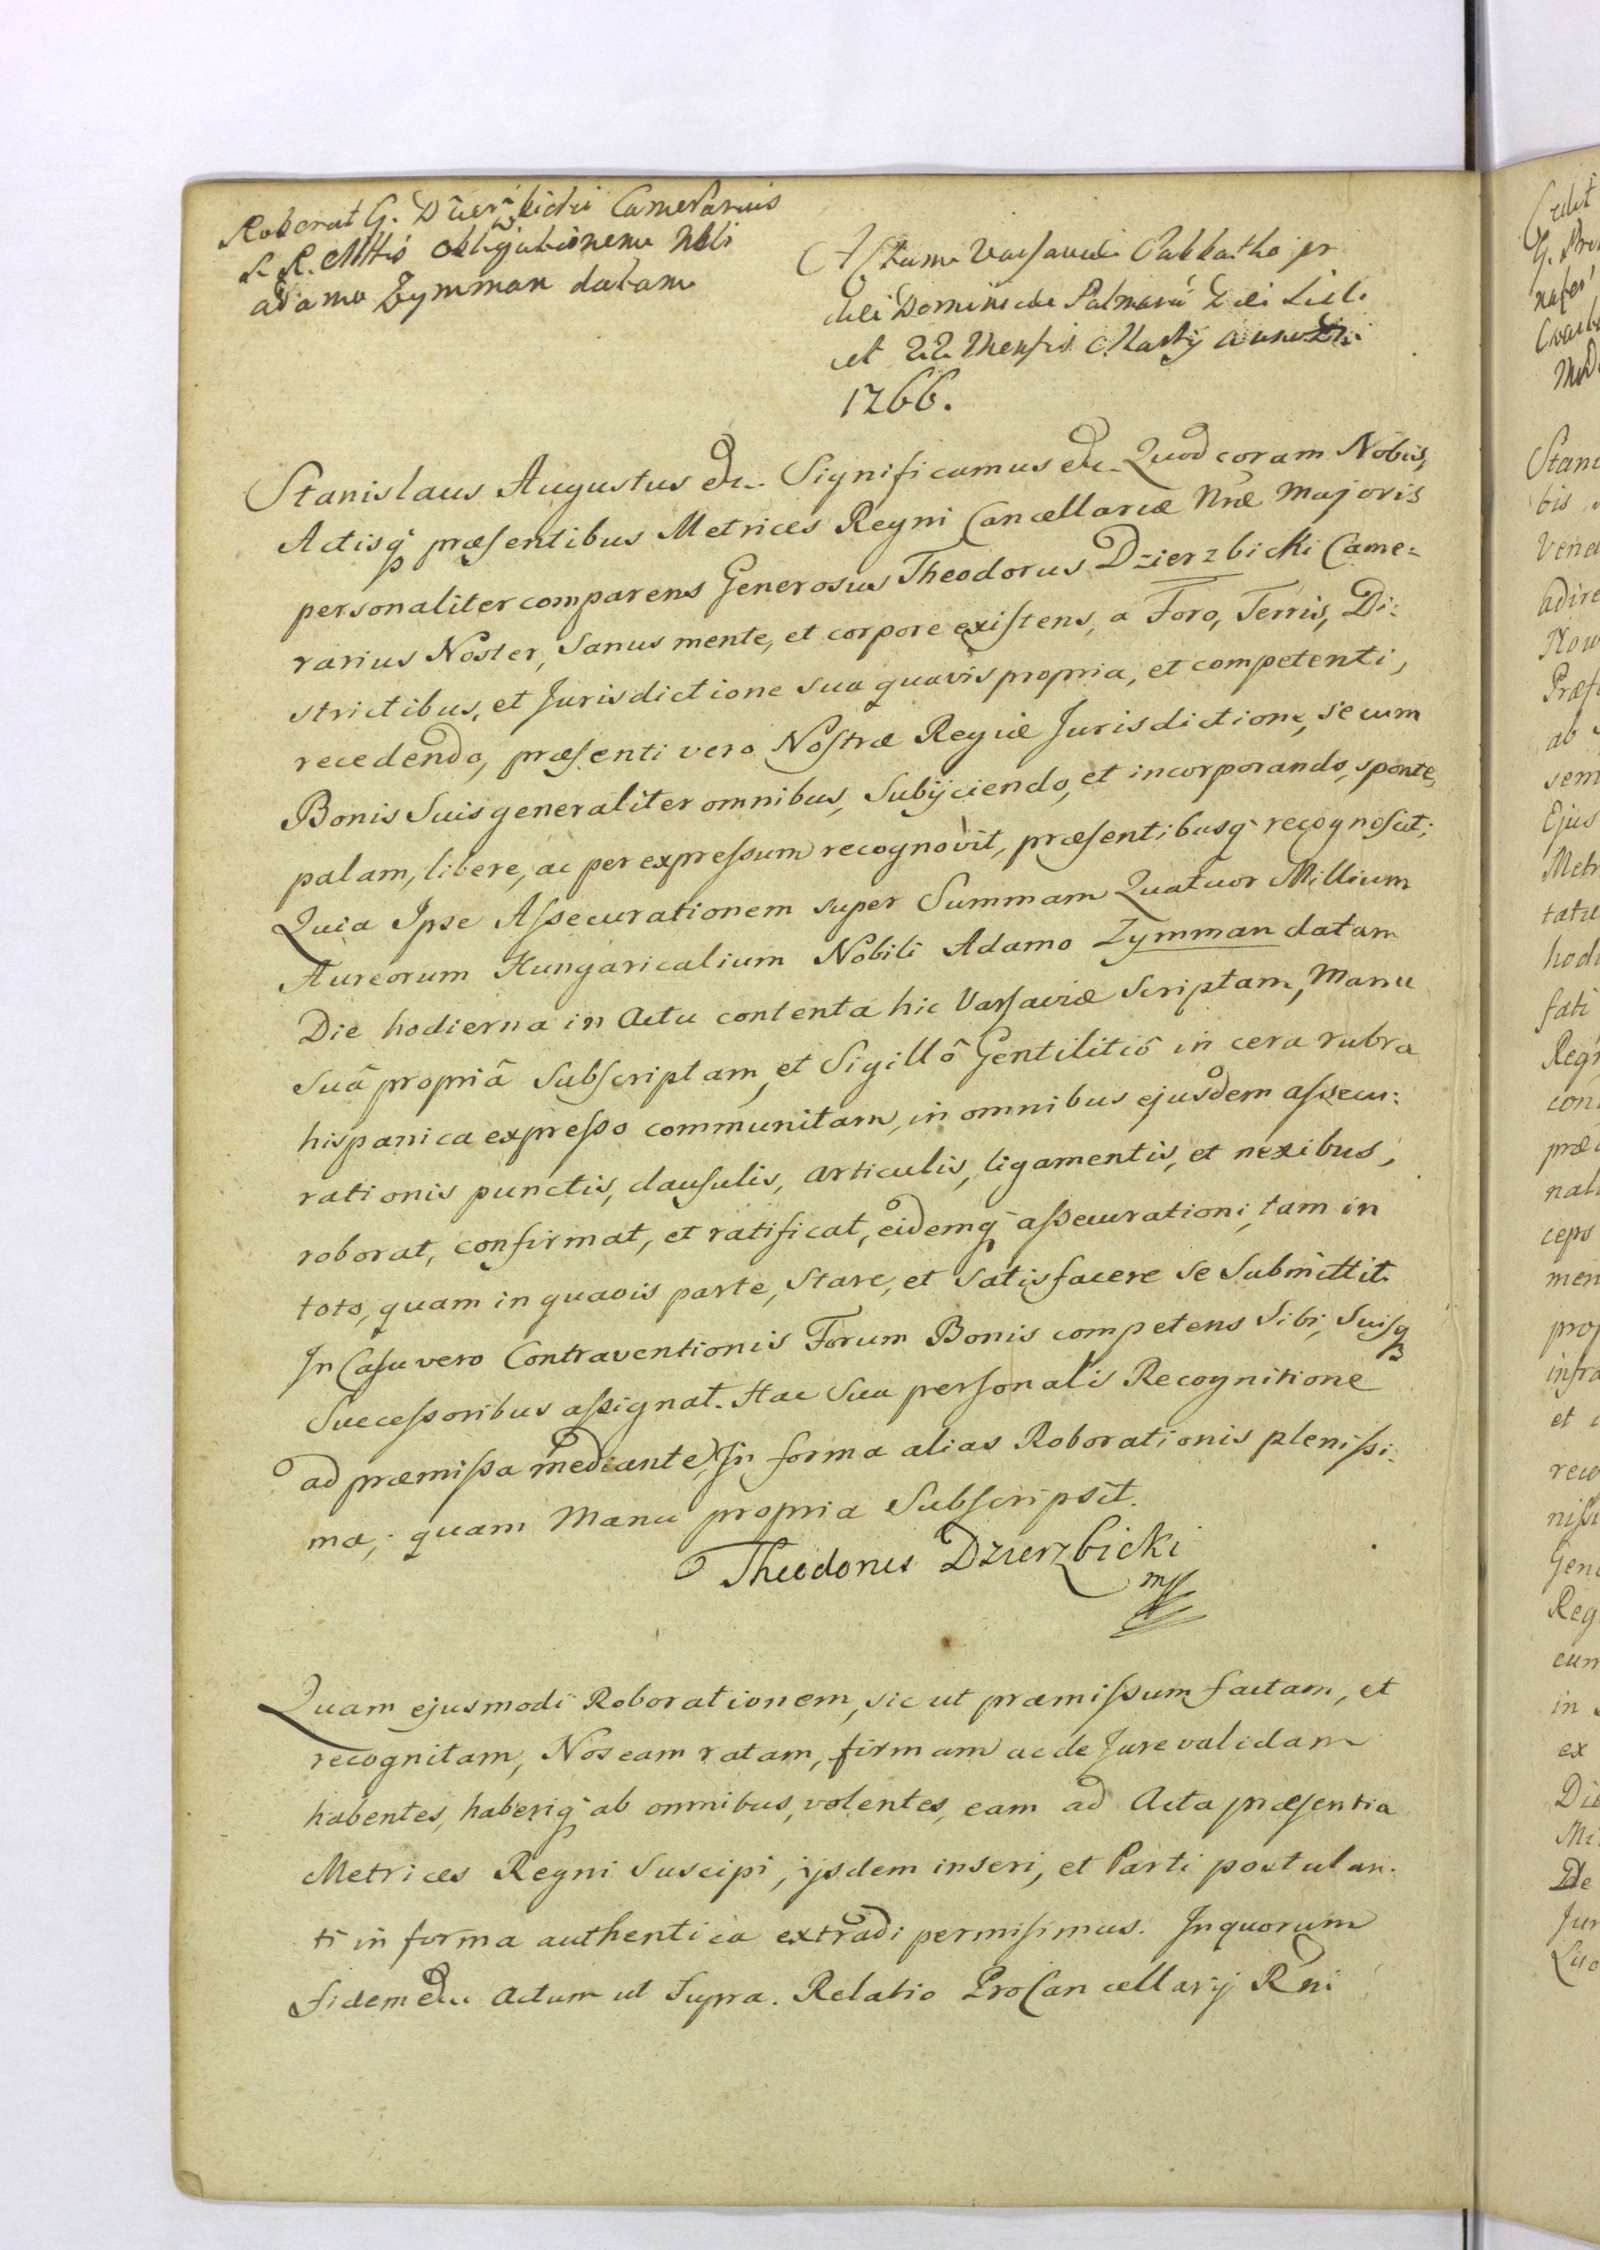 Roborat G. Dzierzbicki Camerarius
S. R. Mttis obligationem Nbli
adamo Zymman datam
Actum Varsaviæ Sabbatho pr
die Dominicæ Palmarū
et 22 Mensis Martij anno Dni
1766.
Stanislaus Augustus etc. Significamus etc. Quod coram Nobis,
Actisq præsentibus Metrices Regni Cancellariæ Nræ Majoris
personaliter comparens Generosus Theodorus Dzierzbicki Came=
rarius Noster, Sanus mente, et corpore existens, a Foro, Terris, Di:
strictibus, et Jurisdictione sua quavis propria, et competenti,
recedendo, præsenti vero Nostræ Regiæ Jurisdictione, se cum
Bonis Suis generaliter omnibus, Subijciendo, et incorporando, sponte,
palam, libere, ac per expressum recognovit, præsentibusq recognoscit;
Quia Ipse Assecurationem super Summam Quatuor Millium
Aureorum Hungaricalium Nobili Adamo Zymman datam
Die hodierna in Actu contenta hic Varsaviæ Scriptam, Manu
Suâ propriâ Subscriptam, et Sigillô Gentilitiô in cera rubra
hispanica expresso communitam, in omnibus ejusdem assecu:
rationis punctis, clausulis, articulis, ligamentis, et nexibus,
roborat, confirmat, et ratificat, eidemq assecurationi, tam in
toto, quam in quavis parte, Stare, et Satisfacere se Submittit.
In Casu vero Contraventionis Forum Bonis competens Sibi, Suisq
Successoribus assignat. Hac Sua personalis Recognitione
ad præmissa mediante, In forma alias Roborationis plenissi:
ma, quam Manu propria Subscripsit.
Theodorus Dzierzbicki
mp
Quam ejusmodi Roborationem, sic ut præmissum factam, et
recognitam, Nos eam ratam, firmam ac de Jure validam
habentes, haberiq ab omnibus, volentes, eam ad Acta præsentia
Metrices Regni Suscipi, ijsdem inseri, et Parti postulan:
ti in forma authentica extradi permisimus. In quorum
fidem etc. Actum ut Supra. Relatio ProCancellarij Rni